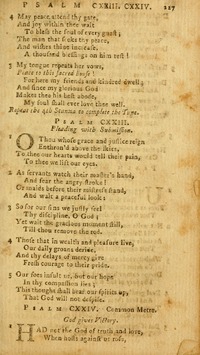 PSALM CXXIII. CXXIV. 227
4 May peace attend thy gate,
And joy within thee wait
To bless the soul of every guest;
The man that seeks thy peace,
And wishes thine increase,
A thousand blessings on him rest!
5 My tongue repeats her vows,
Peace to this sacred house!
For here my friends and kindred dwell;
And since my glorious God
Makes thee his blest abode,
My soul shall ever love thee well.
Repeat the 4th Stanza to complete the Tune.
PSALM CXXIII.
Pleading with Submission.
1 O Thou whose grace and justice reign
Enthron'd above the skies,
To thee our hearts would tell their pain,
To thee we lift our eyes.
2 As servants watch their master's hand,
And fear the angry stroke!
Or maids before their mistress stand,
And wait a peaceful look:
3 So for our sins we justly feel
Thy discipline, O God;
Yet wait the gracious moment still,
Till thou remove the rod.
4 Those that in wealth and pleasure live,
Our daily groans deride,
And thy delays of mercy give
Fresh courage to their pride.
5 Our foes insult us, but our hope
In thy compassion lies;
This thought shall bear our spirits up,
That God will not despise.
PSALM CXXIV. Common Metre.
God gives Victory.
HAD not the God of truth and love,
When hosts against us rose,